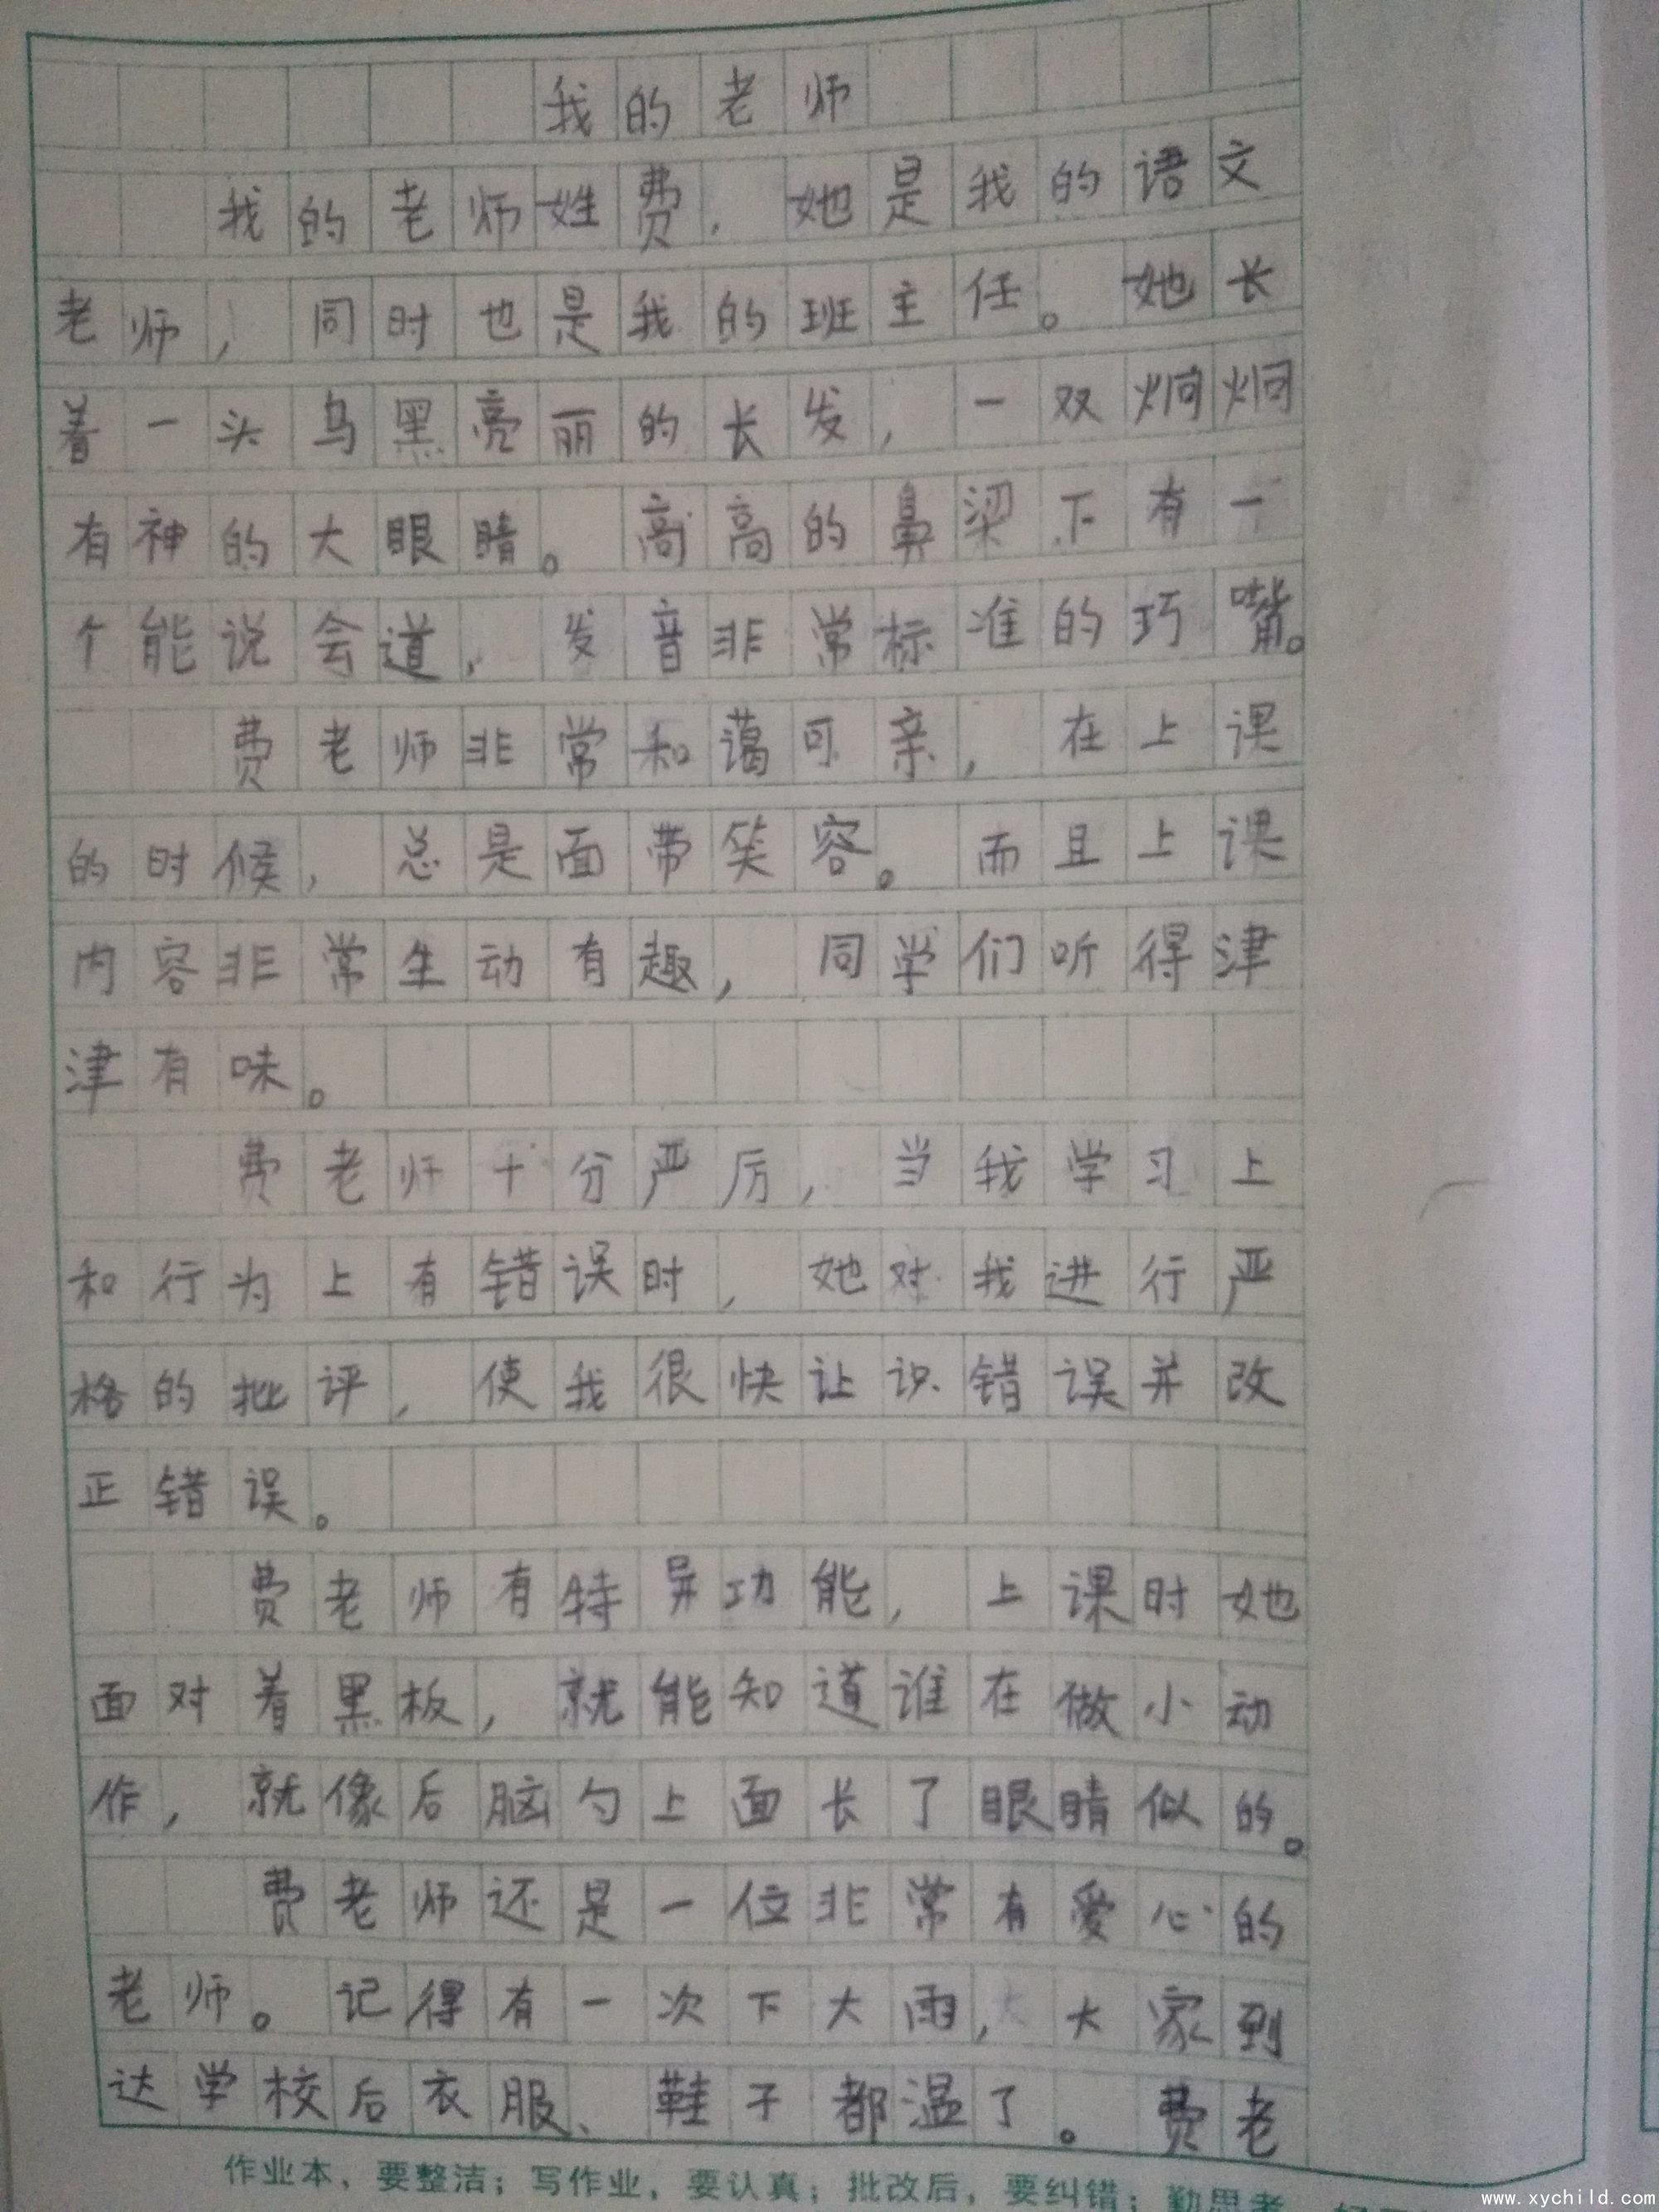 我的老师
我的老师姓费，她是我的语文
老师，同时也是我的班主任。她长
着一头乌黑亮丽的长发，一双炯炯
有神的大眼睛。高高的鼻梁下有一
个能说会道，发音非常标准的巧嘴。
费老师非常和蔼可亲，在上课
的时候，总是面带笑容。而且上课
内容非常生动有趣，同学们听得津
津有味。
费老师十分严厉，当我学习上
和行为上有错误时，她对我进行严
格的批评，使我很快让识错误并改
正错误。
费老师有特异功能，上课时她
面对着黑板，就能知道谁在做小动
作，就像后脑勺上面长了眼睛似的。
费老师还是一位非常有爱心的
老师。记得有一次下大雨，大家到
达学校后衣服、鞋子都温了。费老
作业本，要整洁；写作业，要认真；批改后，要纠错；勤思考
www.xychild.com